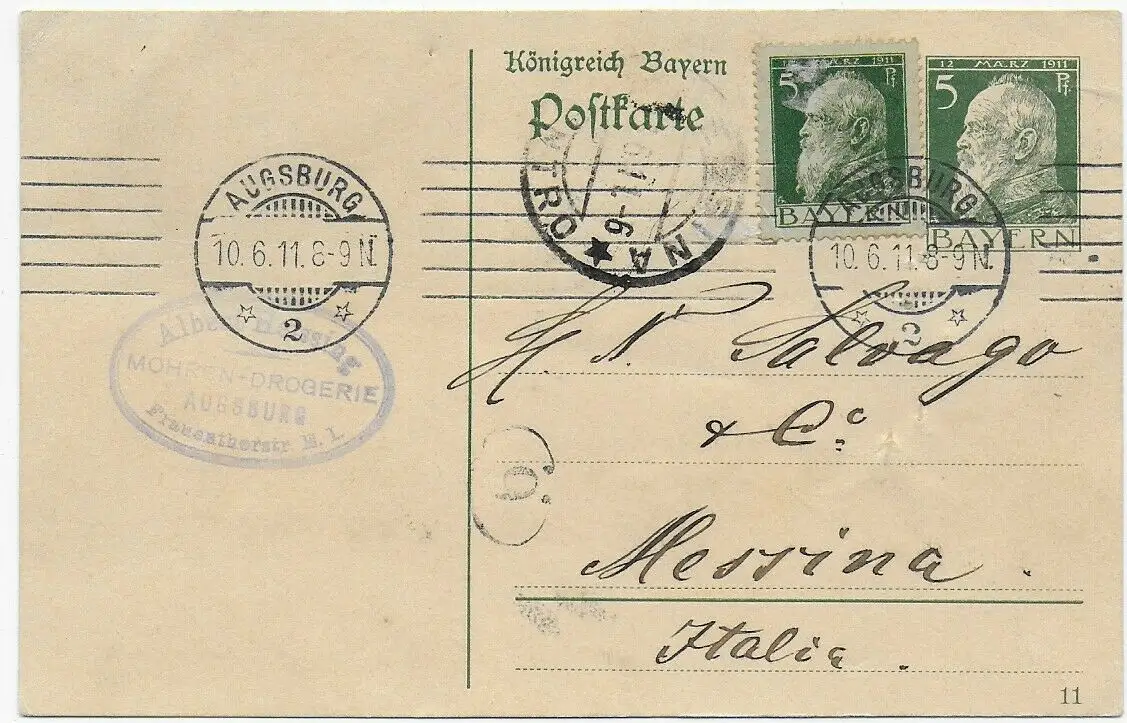 Königreich Bayern
Postkarte
5 12 MÄRZ 1911 Pf
BAYERN
5 12 MÄRZ 1911 Pf.
BAYERN
AUGSBURG
10.6.11.8-9N.
2
AUGSBURG
10.6.11.8-9N.
2
MOHREN-DROGERIE
AUGSBURG
H. N. Salvago
& Co.
Messina.
Italia.
11